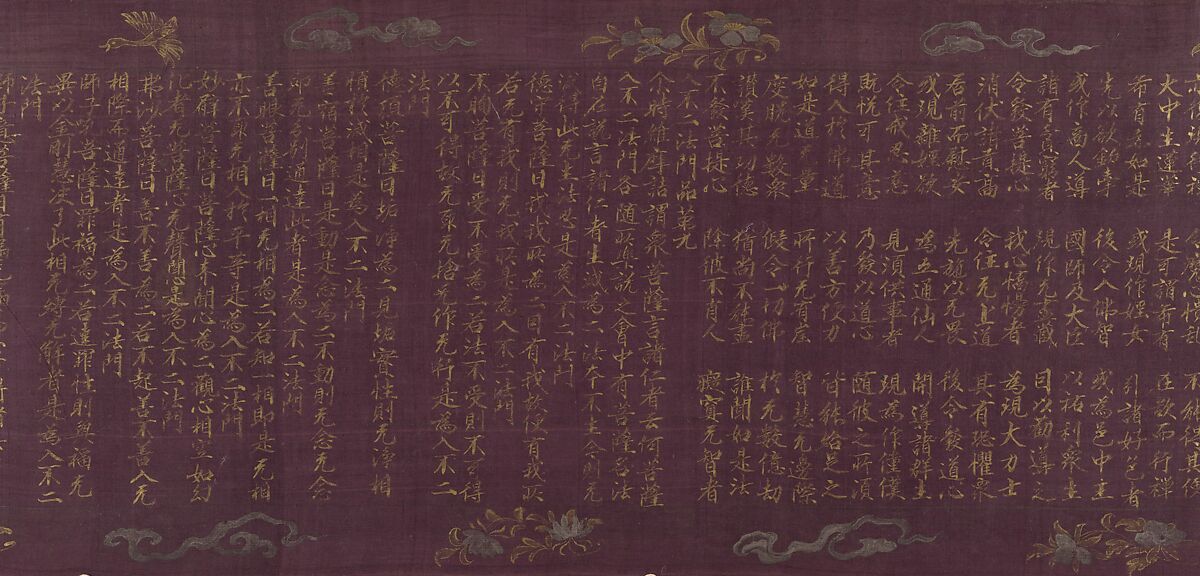 火中生蓮華 是可謂希有 在欲而行禪
希有亦如是 或現作婬女 引諸好色者
先以欲鉤牽 後令入佛智 或為邑中主
或作商人導 國師及大臣 以祐利衆生
諸有貧窮者 現作无盡藏 因以勸導之
令發菩提心 我心憍慢者 為現大力士
消伏諸貢高 令住无上道 其有恐懼衆
居前而慰安 先施以无畏 後令發道心
或現離婬欲 為五通仙人 開導諸群生
令住戒忍慈 見須供事者 現為作僮僕
既悅可其意 乃發以道心 隨彼之所須
得入於佛道 以善方便力 皆能給足之
如是道无量 所行无有崖 智慧无邊際
度脫无數衆 假令一切佛 於无數億劫
讚嘆其功德 猶尚不能盡 誰聞如是法
不發菩提心 除彼不肖人 癡冥无智者
入不二法門品第九
尒時維摩詰謂衆菩薩言諸仁者云何菩薩
入不二法門各隨所樂說之會中有菩薩名法
自在說言諸仁者生滅為二法本不生今則无
滅得此无生法忍是為入不二法門
德守菩薩曰我我所為二因有我故便有我所
若无有我則无我所是為入不二法門
不眴菩薩曰受不受為二若法不受則不可得
以不可得故无取无捨无作无行是為入不二
法門
德頂菩薩曰垢淨為二見垢實性則无淨相
順於滅相是為入不二法門
善宿菩薩曰是動是念為二不動則无念无念
即无分別通達此者是為入不二法門
善眼菩薩曰一相无相為二若知一相即是无相
亦不取无相入於平等是為入不二法門
妙臂菩薩曰菩薩心聲聞心為二觀心相空如幻
化者无菩薩心无聲聞心是為入不二法門
弗沙菩薩曰善不善為二若不起善不善入无
相際而通達者是為入不二法門
師子菩薩曰罪福為二若達罪性則與福无
異以金剛慧決了此相无縛无解者是為入不二
法門